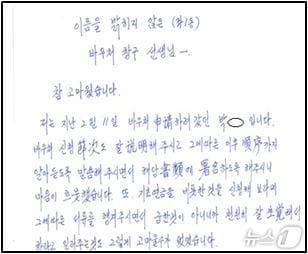 이름을 밝히지 않은 (최1층)
바우처 창구 선생님 —.
참 고마웠습니다.
저는 지난 2월 11일 바우처 申請하러 갔던 박 입니다.
바우처 신청 節次도 잘 說明해 주시고 그에따른 이후 順序까지
알아듣도록 말씀해 주시면서 해당 書類에 署名하도록 해주시니
마음이 흐뭇했습니다. 또, 기초연금을 비롯한것을 신청해 보라며
그에따른 서류를 챙겨주시면서 급한것이 아니니까 천천히 잘 生覺해서
하라고 일러주는것도 그렇게 고마울수가 없었습니다.
뉴스1